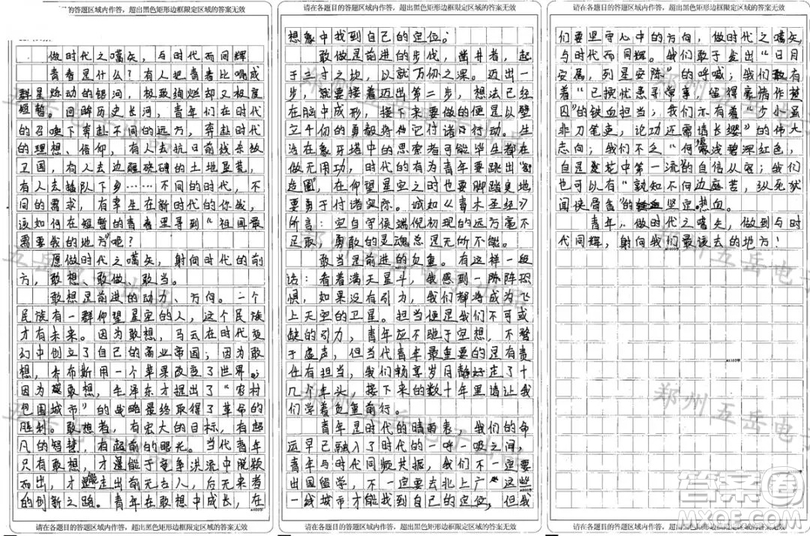 请在各题目的答题区域内作答，超出黑色矩形边框限定区域的答案无效
做时代之嚆矢，与时代而同辉
青春是什么？有人把青春比喻成
群星燃动的银河，极致绚烂却又极度
短暂。回眸历史长河，青年们在时代
的召唤下奔赴不同的远方，奔赴时代
的理想、信仰，有人去抗日前线杀敌
卫国，有人去边疆硗硗的土地垦荒，
有人去插队下乡……不同的时代，不
同的需求，有幸生在新时代的你我，
该如何在短暂的青春里寻到“祖国最
需要我的地方”呢？
愿做时代之嚆矢，射向时代的前
方，敢想、敢做、敢当。
敢想是前进的动力、方向。一个
民族有一群仰望星空的人，这个民族
才有未来。因为敢想，马云在时代变
幻中创立了自己的商业帝国；因为敢
想，乔布斯用一个苹果改变了世界；
因为敢想，毛泽东才提出了“农村
包围城市”的战略最终取得了革命的
胜利。敢想者，有宏大的目标，有超
凡的智慧，有超前的眼光。当代青年
只有敢想，才能于竞争洪流中脱颖
而出，才能走出前无古人，后无来者
的创新之路。青年在敢想中成长，在
请在各题目的答题区域内作答，超出黑色矩形边框限定区域的答案无效
请在各题目的答题区域内作答，超出黑色矩形边框限定区域的答案无效
想象中找到自己的定位。
敢做是前进的步伐，凿井者，起
于三寸之坎，以就万仞之深。迈出一
步，就要接着迈出第二步，想象已经
在脑中成形，接下来要做的便是以壁
立千仞的勇毅将它付诸于行动。生
活在象牙塔中的思索者可能毕生都在
做无用功，时代的有为青年要跳出“
圈”，在仰望星空之时也要脚踏实地
更勇于付诸实际。诚如《青木圣经》
所言：空自守候端倪初现的远方毫不
足取，勇敢的灵魂总是无所不能。
敢当是前进的负重。有这样一段
话：看着满天星斗，我感到一阵阵恐
惧，如果没有引力，我们都将成为飞
上天空的卫星。担当便是我们不可或
缺的引力，青年应不驰于空想，不骛
于虚声，但当代青年最重要的是有责
任有担当，我们畅享岁月静好走了十
几个年头，接下来的数十年里请让我
们学着负重前行。
青年是时代的晴雨表，我们的命
运早已融入了时代的一呼一吸之间，
青年与时代同频共振，我们不一定要
出国留学，不一定要去北上广这些
一线城市才能找到自己的定位，但我
请在各题目的答题区域内作答，超出黑色矩形边框限定区域的答案无效
请在各题目的答题区域内作答，超出黑色矩形边框限定区域的答案无效
们要坚定心中的方向，做时代之嚆矢，
与时代而同辉。我们敢于发出“日月
安属，列星安陈”的呼喊；我们敢有
着“已揽忧患寻常事，留得豪情作楚
囚”的铁血担当；我们亦有着“少小虽
非刀笔吏，论功还需请长缨”的伟大
志向；我们不乏“何须浅碧深红色，
自是花中第一流的自信从容；我们
也可以有“孰知不向边庭苦，纵死犹
闻侠骨香”的坚定热血。
青年，做时代之嚆矢，做到与时
代同辉，射向我们最该去的地方！
请在各题目的答题区域内作答，超出黑色矩形边框限定区域的答案无效
郑州五岳电
答案圈
MXQE.COM